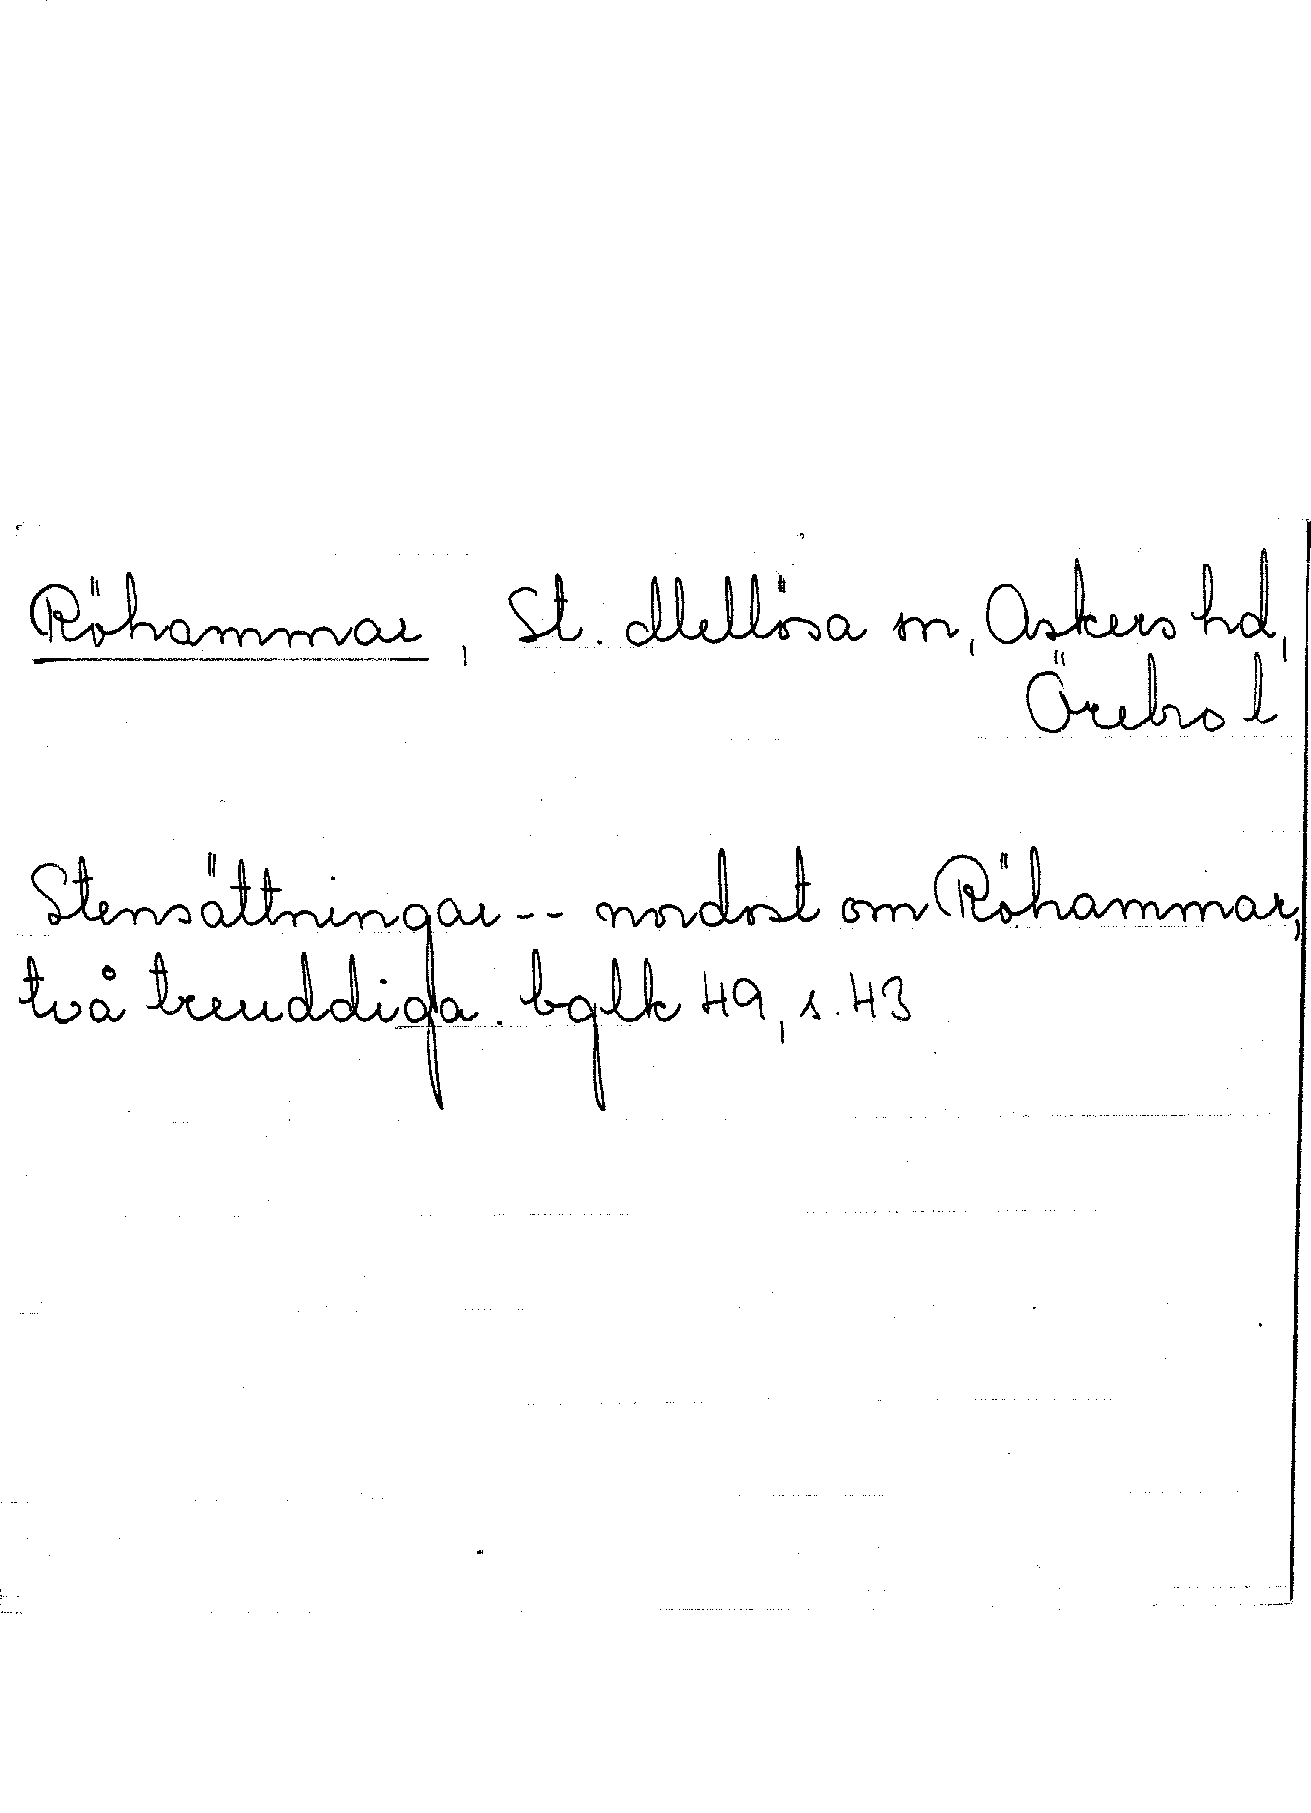 Röhammar, St. Mellösa sn, Askers hd,
Örebro l
Stensättningar -- nordost om Röhammar,
två treuddiga. bglk 49, s. 43